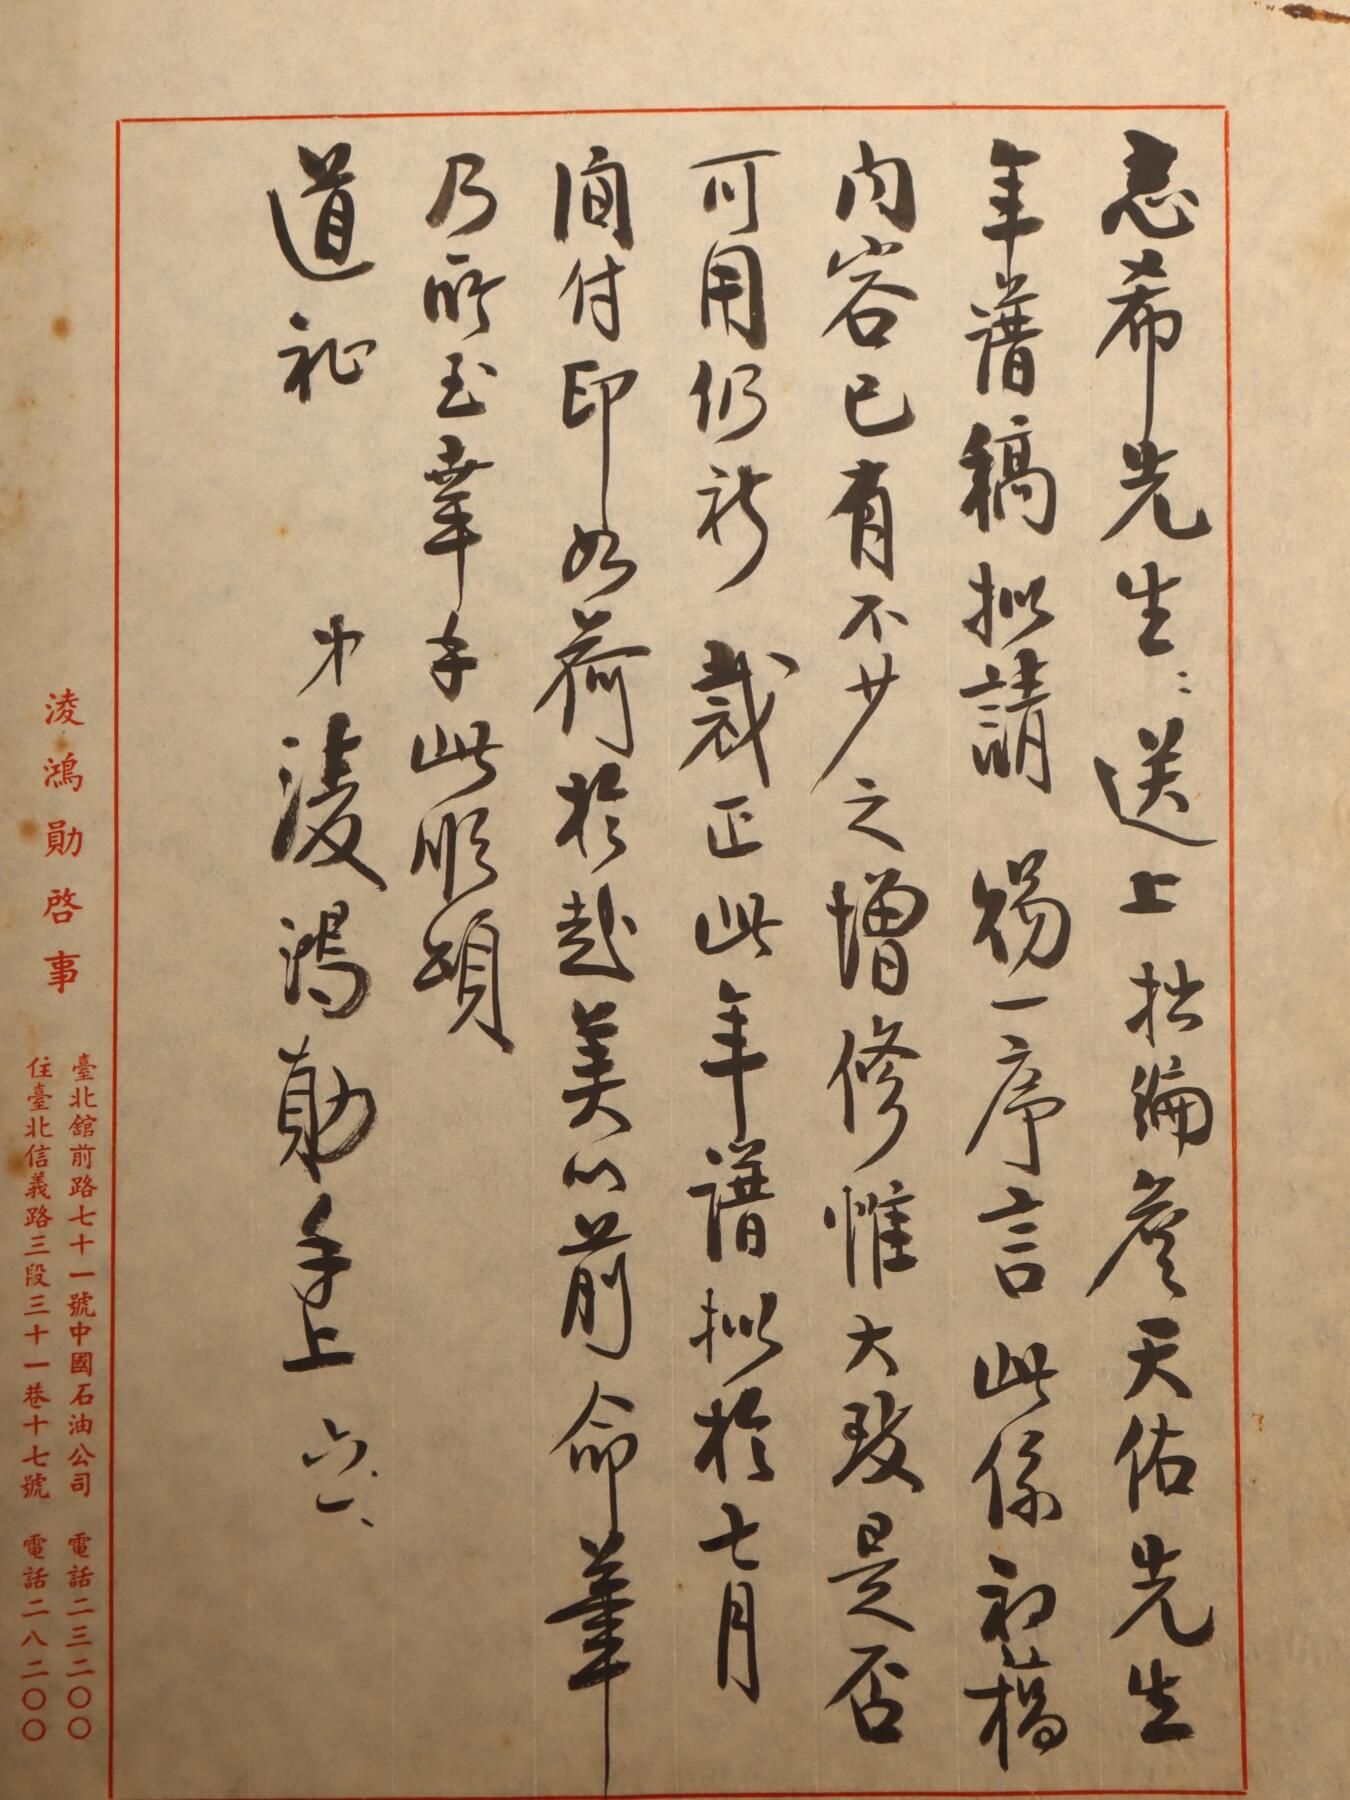 志希先生：送上拙編詹天佑先生
年譜稿擬請　賜一序言此係初稿
內容已有不少之增修惟大致是否
可用仍祈　裁正此年譜擬於七月
間付印如荷於赴美以前命筆
乃所至幸手此順頌
道祉
弟凌鴻勛手上　六、一、
淩鴻勛啓事
臺北舘前路七十一號中國石油公司　電話二三二〇〇
住臺北信義路三段三十一巷十七號　電話二八二〇〇